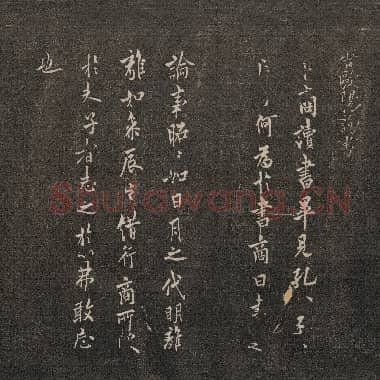 歐陽詢書
卜商讀書畢見孔〻子〻
何為於書商曰書之
論事昭〻如日月之代明離
離如參辰之錯行商所受
於夫子者志之於心弗敢忘
也
Shufawang.CN